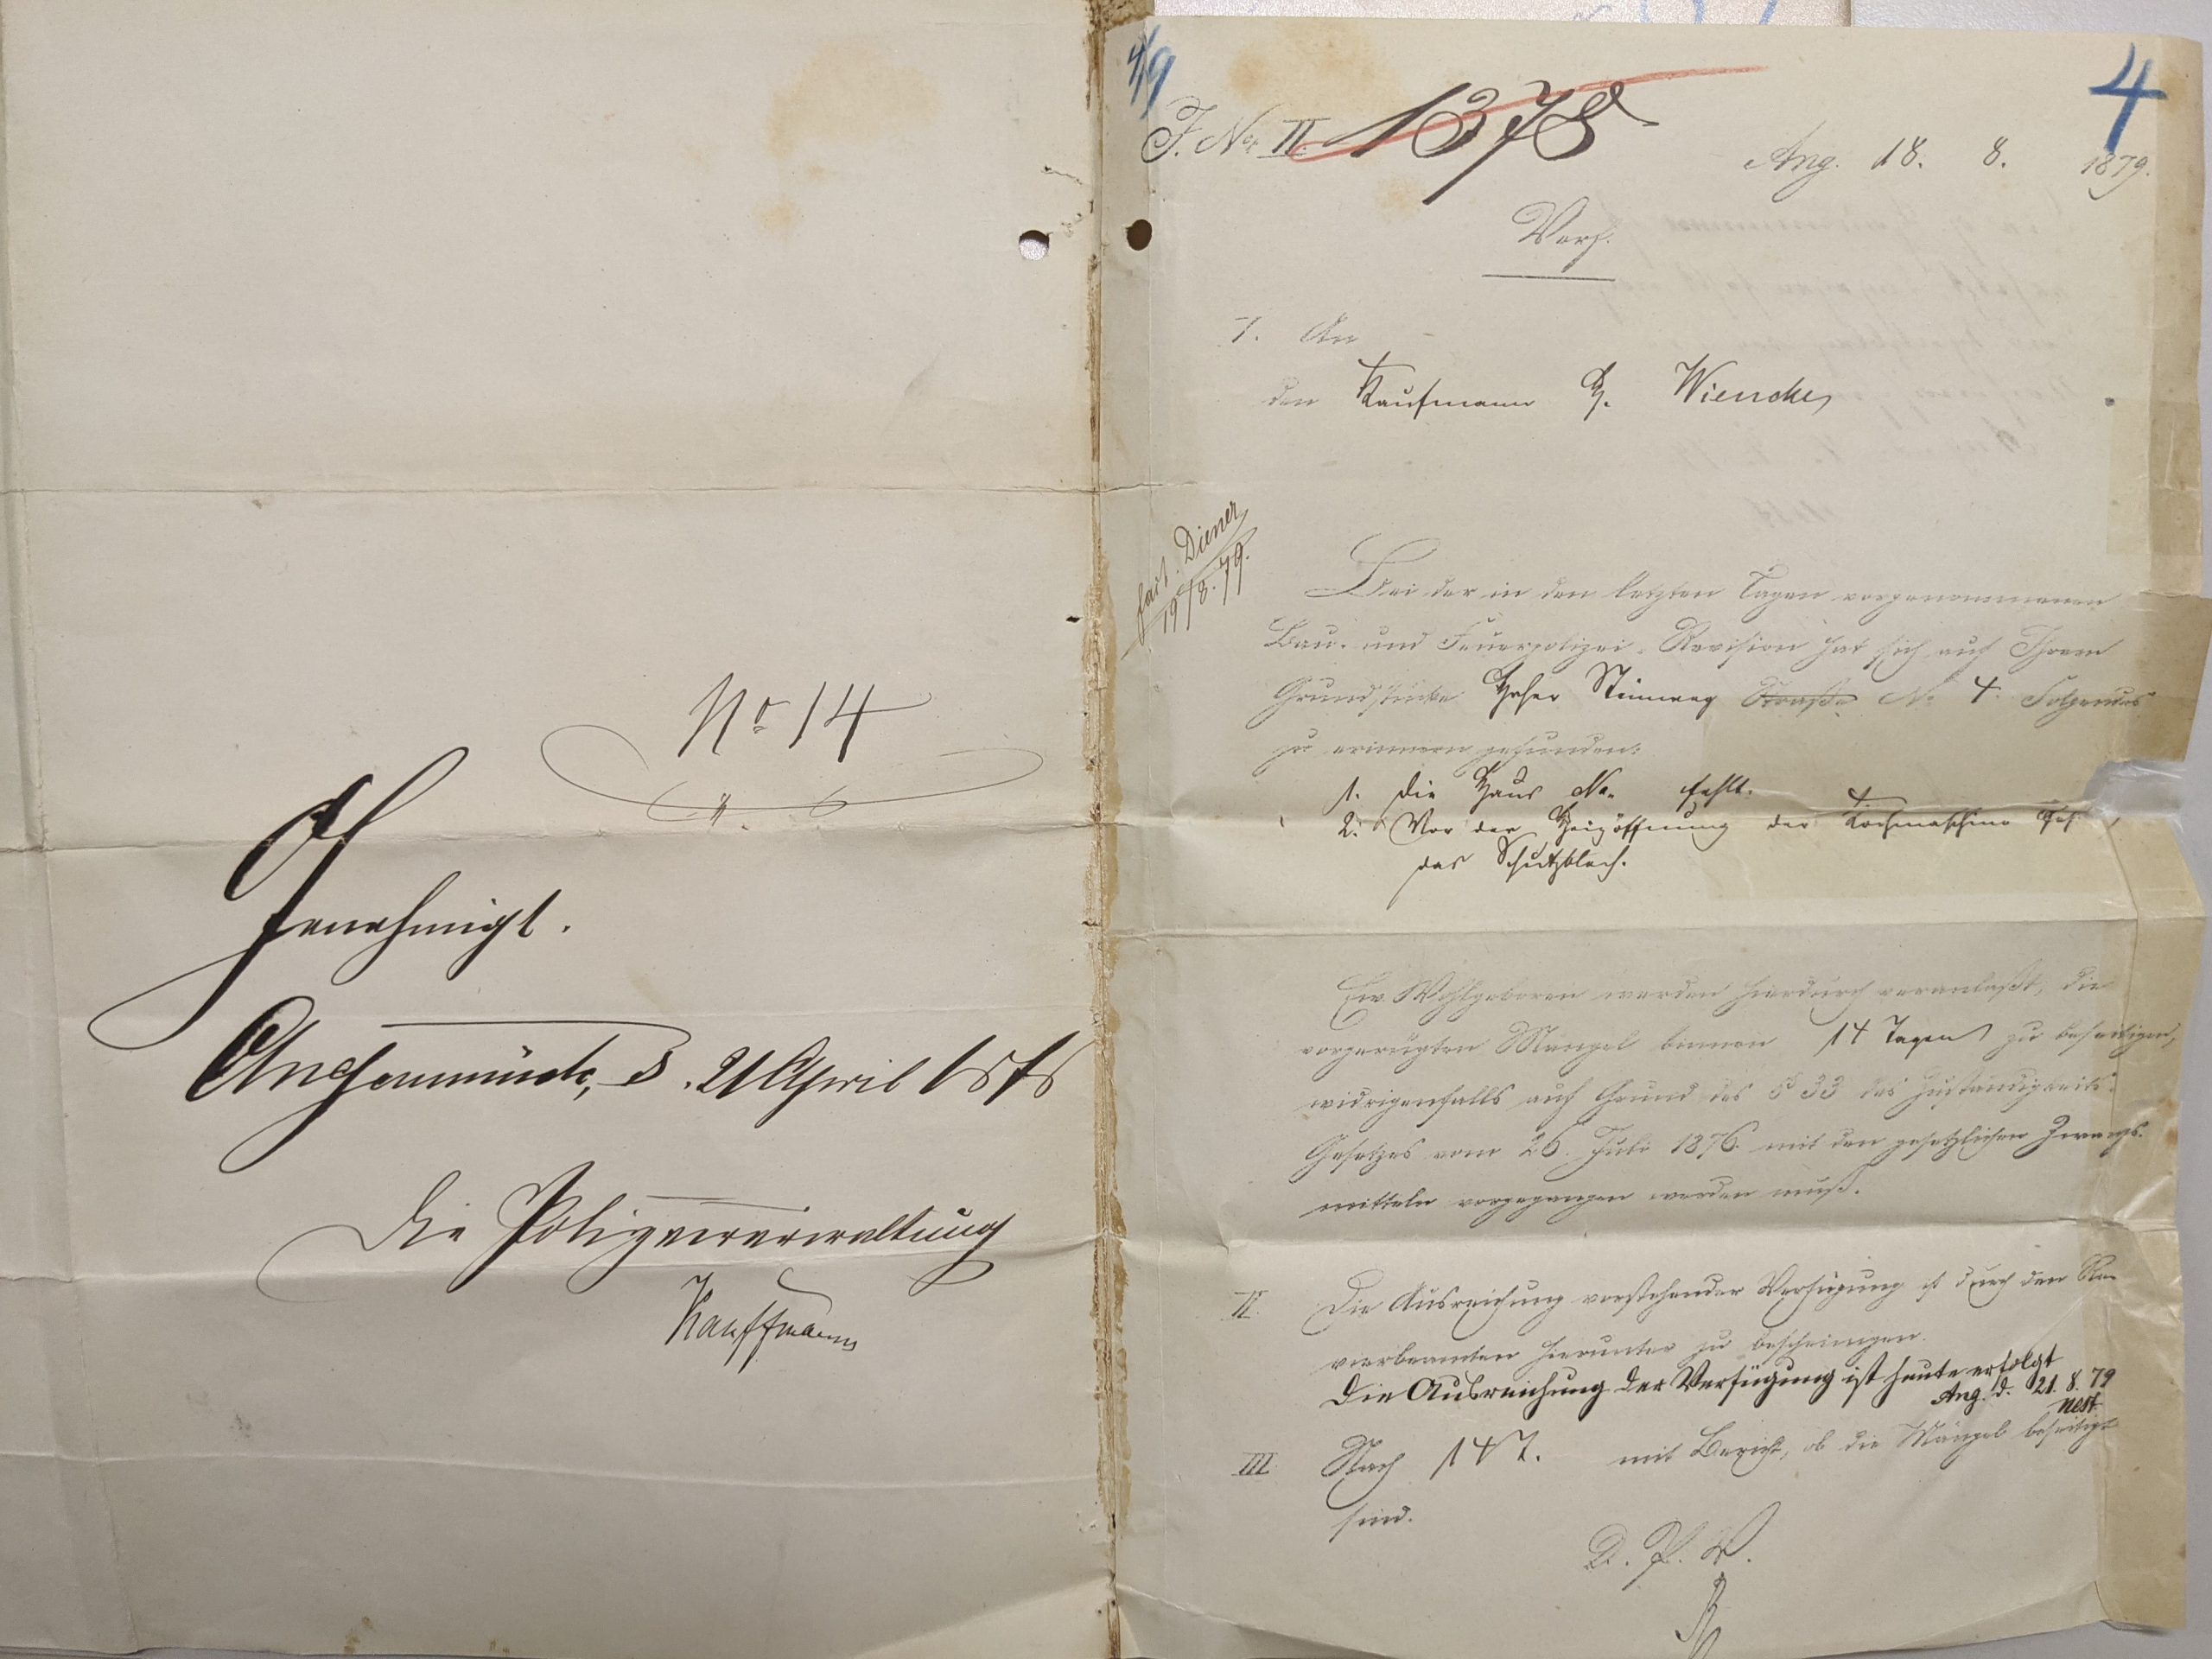 No 14
Genehmigt.
Angermünde, d. 2 April 1878
Die Polizeiverwaltung
Kauffmann
4/9
4
J. No. II. 1378
Ang. 18. 8. 1879.
Verf.
I. An
den Kaufmann H. Wiencke
Diener
19/8.79.
Bei der in den letzten Tagen vorgenommenen
Bau- und Feuerpolizei-Revision hat sich auf Ihrem
Grundstücke Hoher Steinweg Straße No 4. Folgendes
zu erinnern gefunden:
1. Die Haus No. fehlt.
2. Vor der Heizöffnung der Kochmaschine
das Schutzblech.
Ew. Wohlgeboren werden hierdurch veranlaßt, die
vorgerügten Mängel binnen 14 Tagen zu beseitigen,
widrigenfalls auf Grund des § 33 des Zuständigkeits-
Gesetzes vom 26. Juli 1876 mit den gesetzlichen Zwangs-
mitteln vorgegangen werden muß.
II. Die Ausreichung vorstehender Verfügung ist durch den Re-
vierbeamten hierunter zu bescheinigen.
Die Ausreichung der Verfügung ist heute erfolgt
Ang. d. 21. 8. 79
III. Nach 14 T. mit Bericht, ob die Mängel beseitigt
sind.
D. P. V.